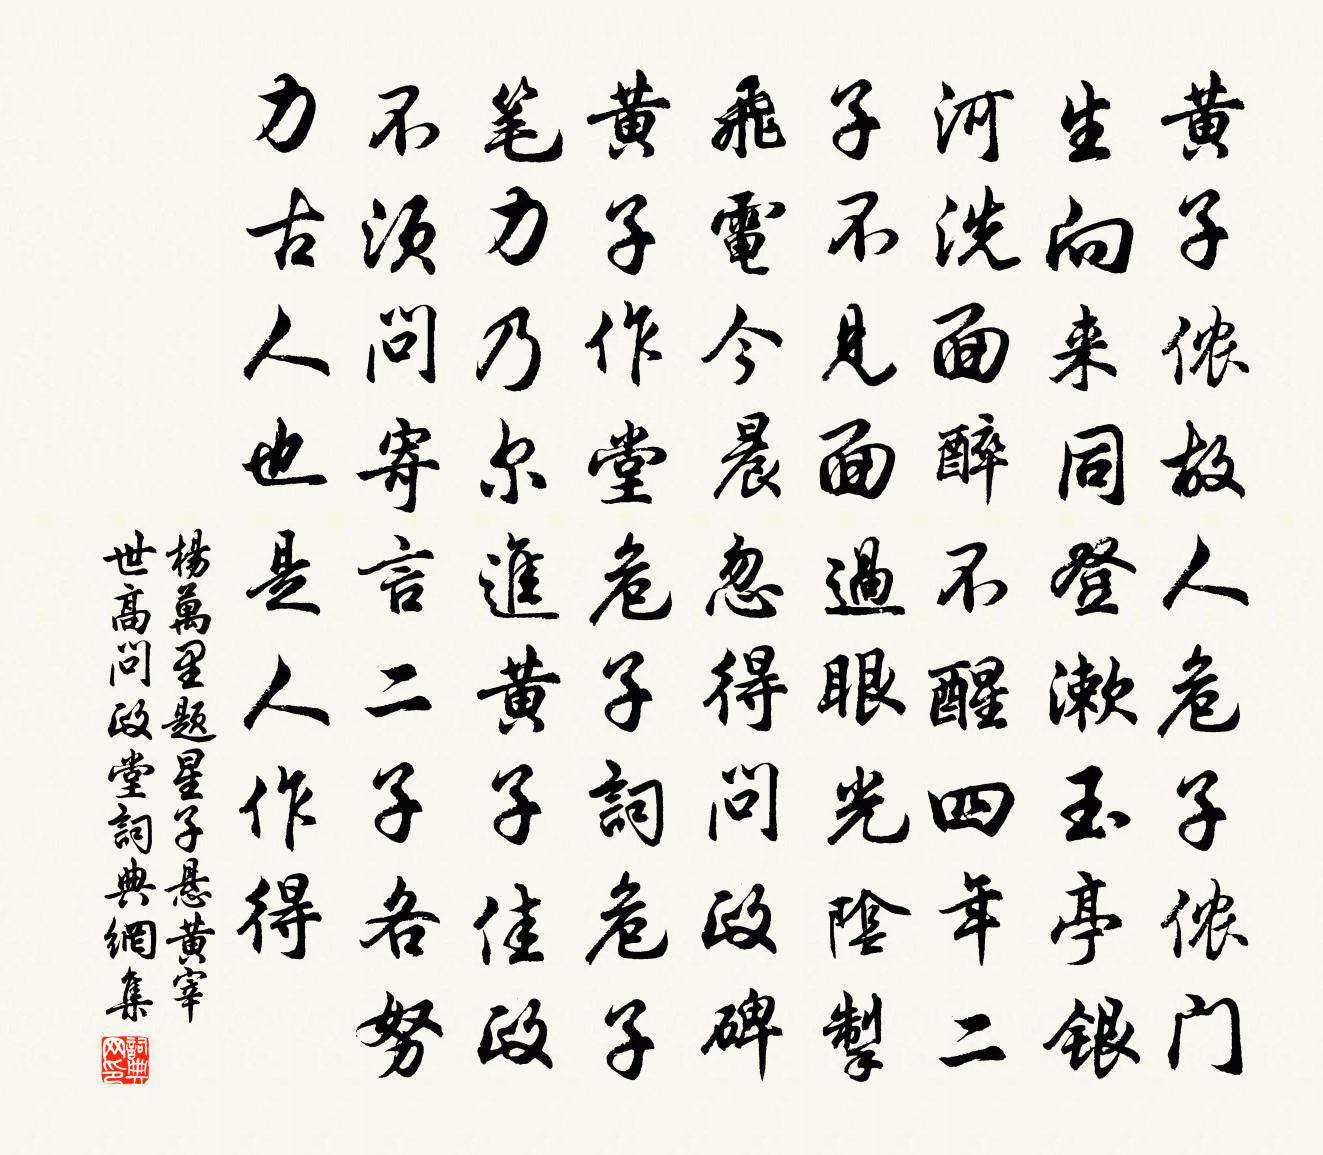 黄子侬故人危子侬门
生向来同登漱玉亭银
河洗面醉不醒四年二
子不见面過眼光陰掣
飛電今晨忽得問政碑
黄子作堂危子詞危子
笔力乃尔進黄子佳政
不须問寄言二子各努
力古人也是人作得
楊萬里题星子悬黄宰
世高問政堂詞典網集
詞典
网印